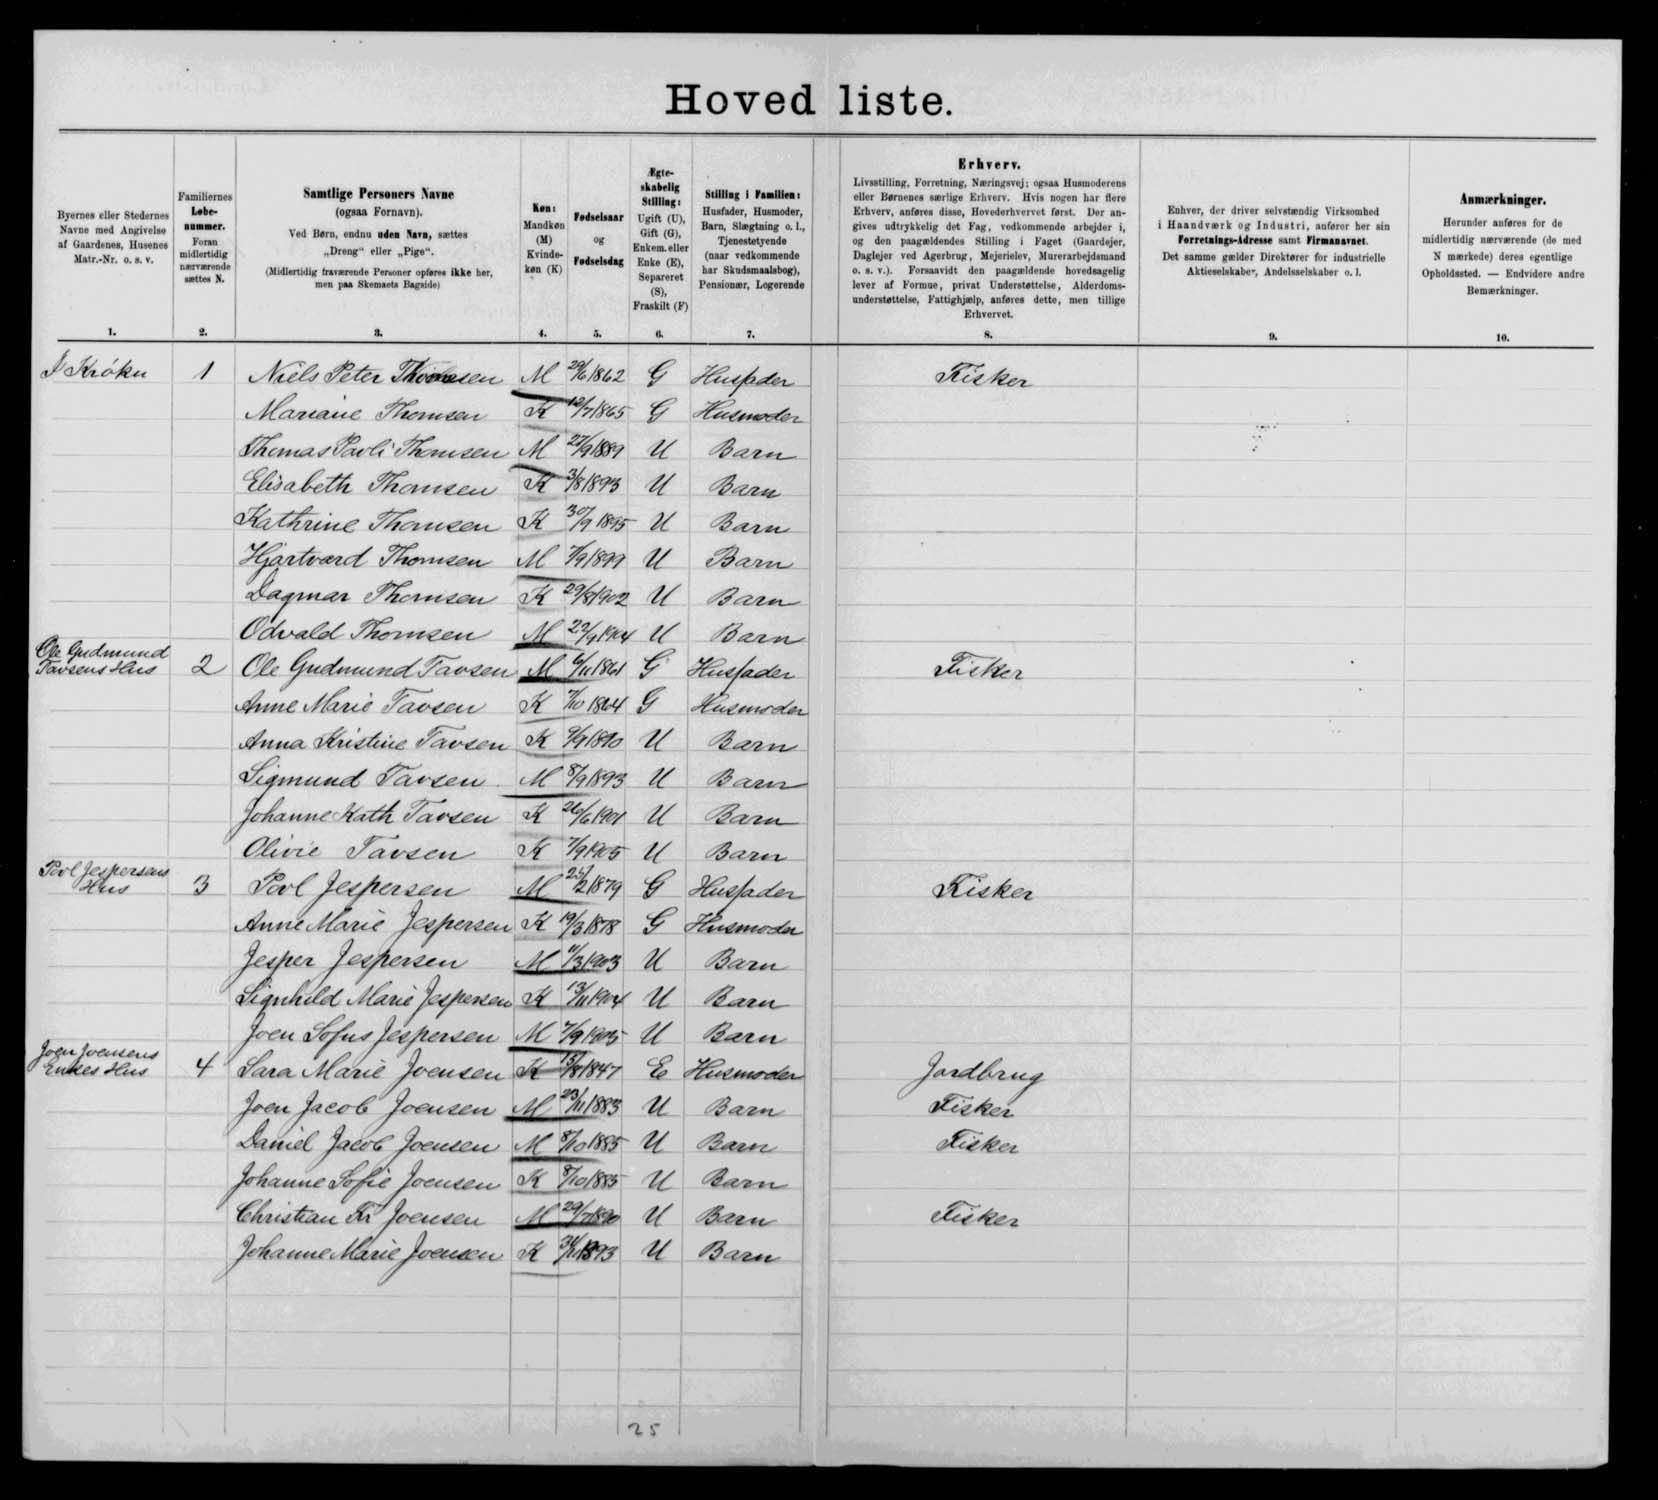 Hoved liste.
Byernes eller Stedernes
Navne med Angivelse
af Gaardenes, Husenes
Matr.-Nr. o. s. v.
1.
Familiernes
Løbe-
nummer.
Foran
midlertidig
nærværende
sættes N.
2.
Samtlige Personers Navne
(ogsaa Fornavn).
Ved Børn, endnu uden Navn, sættes
„Dreng“ eller „Pige“.
(Midlertidig fraværende Personer opføres ikke her,
men paa Skemaets Bagside)
3.
Køn:
Mandkøn
(M)
Kvinde-
køn (K)
4.
Fødselsaar
og
Fødselsdag
5.
Ægte-
skabelig
Stilling:
Ugift (U),
Gift (G),
Enkem. eller
Enke (E),
Separeret
(S),
Fraskilt (F)
6.
Stilling i Familien:
Husfader, Husmoder,
Barn, Slægtning o. l.,
Tjenestetyende
(naar vedkommende
har Skudsmaalsbog),
Pensionær, Logerende
7.
Erhverv.
Livsstilling, Forretning, Næringsvej; ogsaa Husmoderens
eller Børnenes særlige Erhverv. Hvis nogen har flere
Erhverv, anføres disse, Hovederhvervet først. Der an-
gives udtrykkelig det Fag, vedkommende arbejder i,
og den paagældendes Stilling i Faget (Gaardejer,
Daglejer ved Agerbrug, Mejerielev, Murerarbejdsmand
o. s. v.). Forsaavidt den paagældende hovedsagelig
lever af Formue, privat Understøttelse, Alderdoms-
understøttelse, Fattighjælp, anføres dette, men tillige
Erhvervet.
8.
Enhver, der driver selvstændig Virksomhed
i Haandværk og Industri, anfører her sin
Forretnings-Adresse samt Firmanavnet.
Det samme gælder Direktører for industrielle
Aktieselskaber, Andelsselskaber o. l.
9.
Anmærkninger.
Herunder anføres for de
midlertidig nærværende (de med
N mærkede) deres egentlige
Opholdssted. — Endvidere andre
Bemærkninger.
10.
I Króku 1 Niels Peter Thomsen M 29/6 1862 G Husfader Fisker
Mariane Thomsen K 12/7 1865 G Husmoder
Thomas Pavli Thomsen M 27/9 1889 U Barn
Elisabeth Thomsen K 3/8 1893 U Barn
Kathrine Thomsen K 30/9 1895 U Barn
Hjartvard Thomsen M 7/9 1899 U Barn
Dagmar Thomsen K 29/8 1902 U Barn
Odvald Thomsen M 22/9 1904 U Barn
Ole Gudmund
Tavsens Hus 2 Ole Gudmund Tavsen M 6/11 1861 G Husfader Fisker
Anne Marie Tavsen K 7/10 1864 G Husmoder
Anna Kristine Tavsen K 9/9 1890 U Barn
Sigmund Tavsen M 8/9 1893 U Barn
Johanne Kath Tavsen K 26/6 1901 U Barn
Olivie Tavsen K 7/9 1905 U Barn
Povl Jespersens
Hus 3 Povl Jespersen M 25/2 1879 G Husfader Fisker
Anne Marie Jespersen K 19/3 1878 G Husmoder
Jesper Jespersen M 11/3 1903 U Barn
Signhild Marie Jespersen K 13/11 1904 U Barn
Joen Sofus Jespersen M 7/9 1905 U Barn
Joen Joensens
Enkes Hus 4 Sara Marie Joensen K 15/8 1847 E Husmoder Jordbrug
Joen Jacob Joensen M 23/11 1883 U Barn Fisker
Daniel Jacob Joensen M 8/10 1885 U Barn Fisker
Johanne Sofie Joensen K 8/10 1885 U Barn
Christian Fr Joensen M 29/7 1890 U Barn Fisker
Johanne Marie Joensen K 1893 U Barn
25